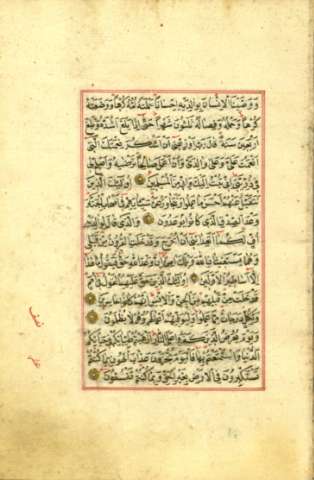 وَوَصَّيْنَا الْاِنْسَانَ بِوَالِدَيْهِ اِحْسَانًا حَمَلَتْهُ اُمُّهُ كُرْهًا وَوَضَعَتْهُ
كُرْهًا وَحَمْلُهُ وَفِصَالُهُ ثَلٰثُونَ شَهْرًا حَتّٰى اِذَا بَلَغَ اَشُدَّهُ وَبَلَغَ
اَرْبَعِينَ سَنَةً قَالَ رَبِّ اَوْزِعْنِى اَنْ اَشْكُرَ نِعْمَتَكَ الَّتِى
اَنْعَمْتَ عَلَىَّ وَعَلٰى وَالِدَىَّ وَاَنْ اَعْمَلَ صَالِحًا تَرْضٰيهُ وَاَصْلِحْ لِى
فِى ذُرِّيَّتِى اِنِّى تُبْتُ اِلَيْكَ وَاِنِّى مِنَ الْمُسْلِمِينَ اُولٰئِكَ الَّذِينَ
نَتَقَبَّلُ عَنْهُمْ اَحْسَنَ مَا عَمِلُوا وَنَتَجَاوَزُ عَنْ سَيِّئَاتِهِمْ فِى اَصْحَابِ الْجَنَّةِ
وَعْدَ الصِّدْقِ الَّذِى كَانُوا يُوعَدُونَ وَالَّذِى قَالَ لِوَالِدَيْهِ
اُفٍّ لَكُمَا اَتَعِدَانِنِى اَنْ اُخْرَجَ وَقَدْ خَلَتِ الْقُرُونُ مِنْ قَبْلِى
وَهُمَا يَسْتَغِيثَانِ اللّٰهَ وَيْلَكَ اٰمِنْ اِنَّ وَعْدَ اللّٰهِ حَقٌّ فَيَقُولُ مَا هٰذَا
اِلَّا اَسَاطِيرُ الْاَوَّلِينَ اُولٰئِكَ الَّذِينَ حَقَّ عَلَيْهِمُ الْقَوْلُ فِى اُمَمٍ
قَدْ خَلَتْ مِنْ قَبْلِهِمْ مِنَ الْجِنِّ وَالْاِنْسِ اِنَّهُمْ كَانُوا خَاسِرِينَ
وَلِكُلٍّ دَرَجَاتٌ مِمَّا عَمِلُوا وَلِيُوَفِّيَهُمْ اَعْمَالَهُمْ وَهُمْ لَا يُظْلَمُونَ
وَيَوْمَ يُعْرَضُ الَّذِينَ كَفَرُوا عَلَى النَّارِ اَذْهَبْتُمْ طَيِّبَاتِكُمْ فِى حَيَاتِكُمُ
الدُّنْيَا وَاسْتَمْتَعْتُمْ بِهَا فَالْيَوْمَ تُجْزَوْنَ عَذَابَ الْهُونِ بِمَا كُنْتُمْ
تَسْتَكْبِرُونَ فِى الْاَرْضِ بِغَيْرِ الْحَقِّ وَبِمَا كُنْتُمْ تَفْسُقُونَ